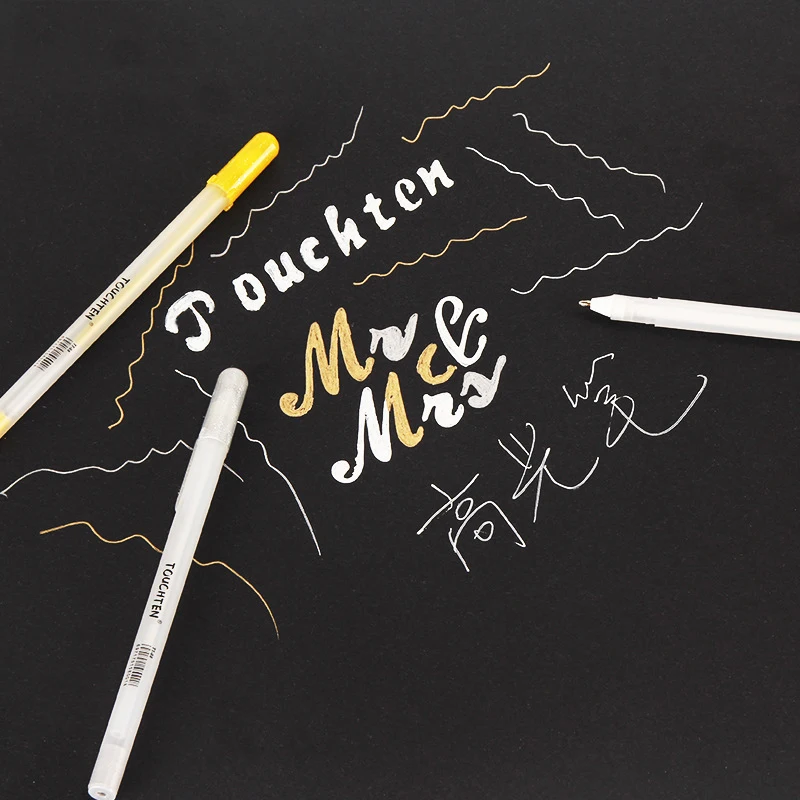 Touchten
Mr &
Mrs
高光笔
TOUCHTEN
TOUCHTEN